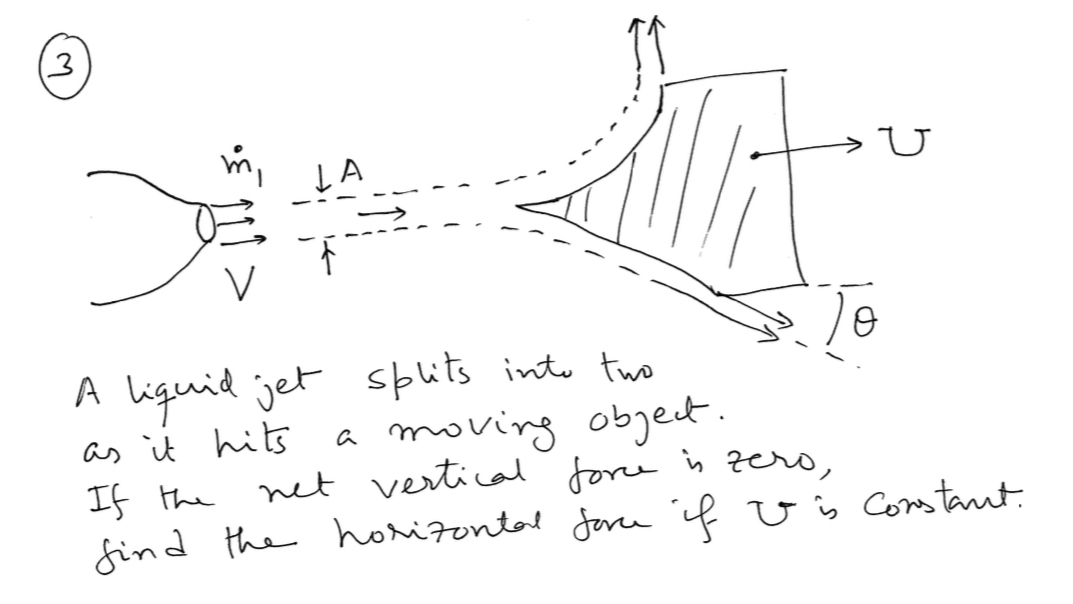 3
ṁ₁
A
V
U
θ
A liquid jet splits into two
as it hits a moving object.
If the net vertical force is zero,
find the horizontal force if U is constant.